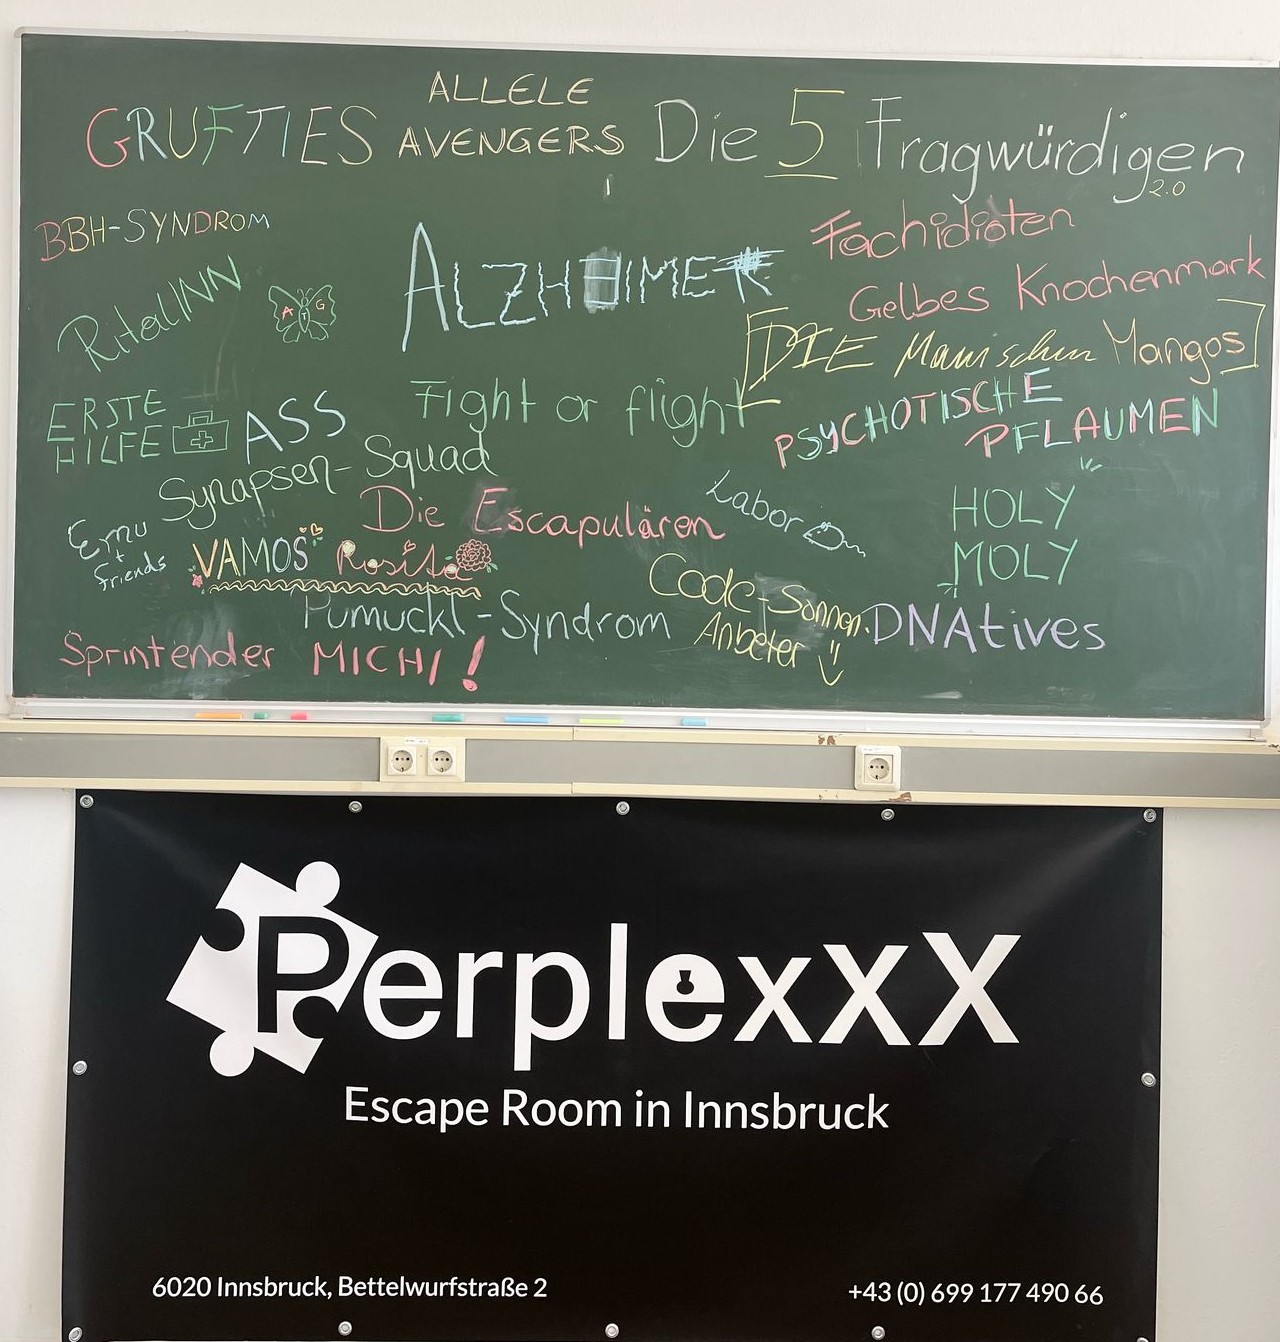 ALLELE
GRUFTIES AVENGERS Die 5 Fragwürdigen
2.0
BBH-SYNDROM
Fachidioten
RitalINN
A T G
ALZHEIMER
Gelbes Knochenmark
[DIE Manischen Mangos]
ERSTE
HILFE
ASS
Fight or flight
PSYCHOTISCHE
PFLAUMEN
Synapsen-Squad
Die Escapulären
Labor
HOLY
MOLY
Emu
+
friends
VAMOS Rosita
Code-Sonnen.
Anbeter
Pumuckl-Syndrom
DNAtives
Sprintender MICHI!
PerplexxX
Escape Room in Innsbruck
6020 Innsbruck, Bettelwurfstraße 2
+43 (0) 699 177 490 66